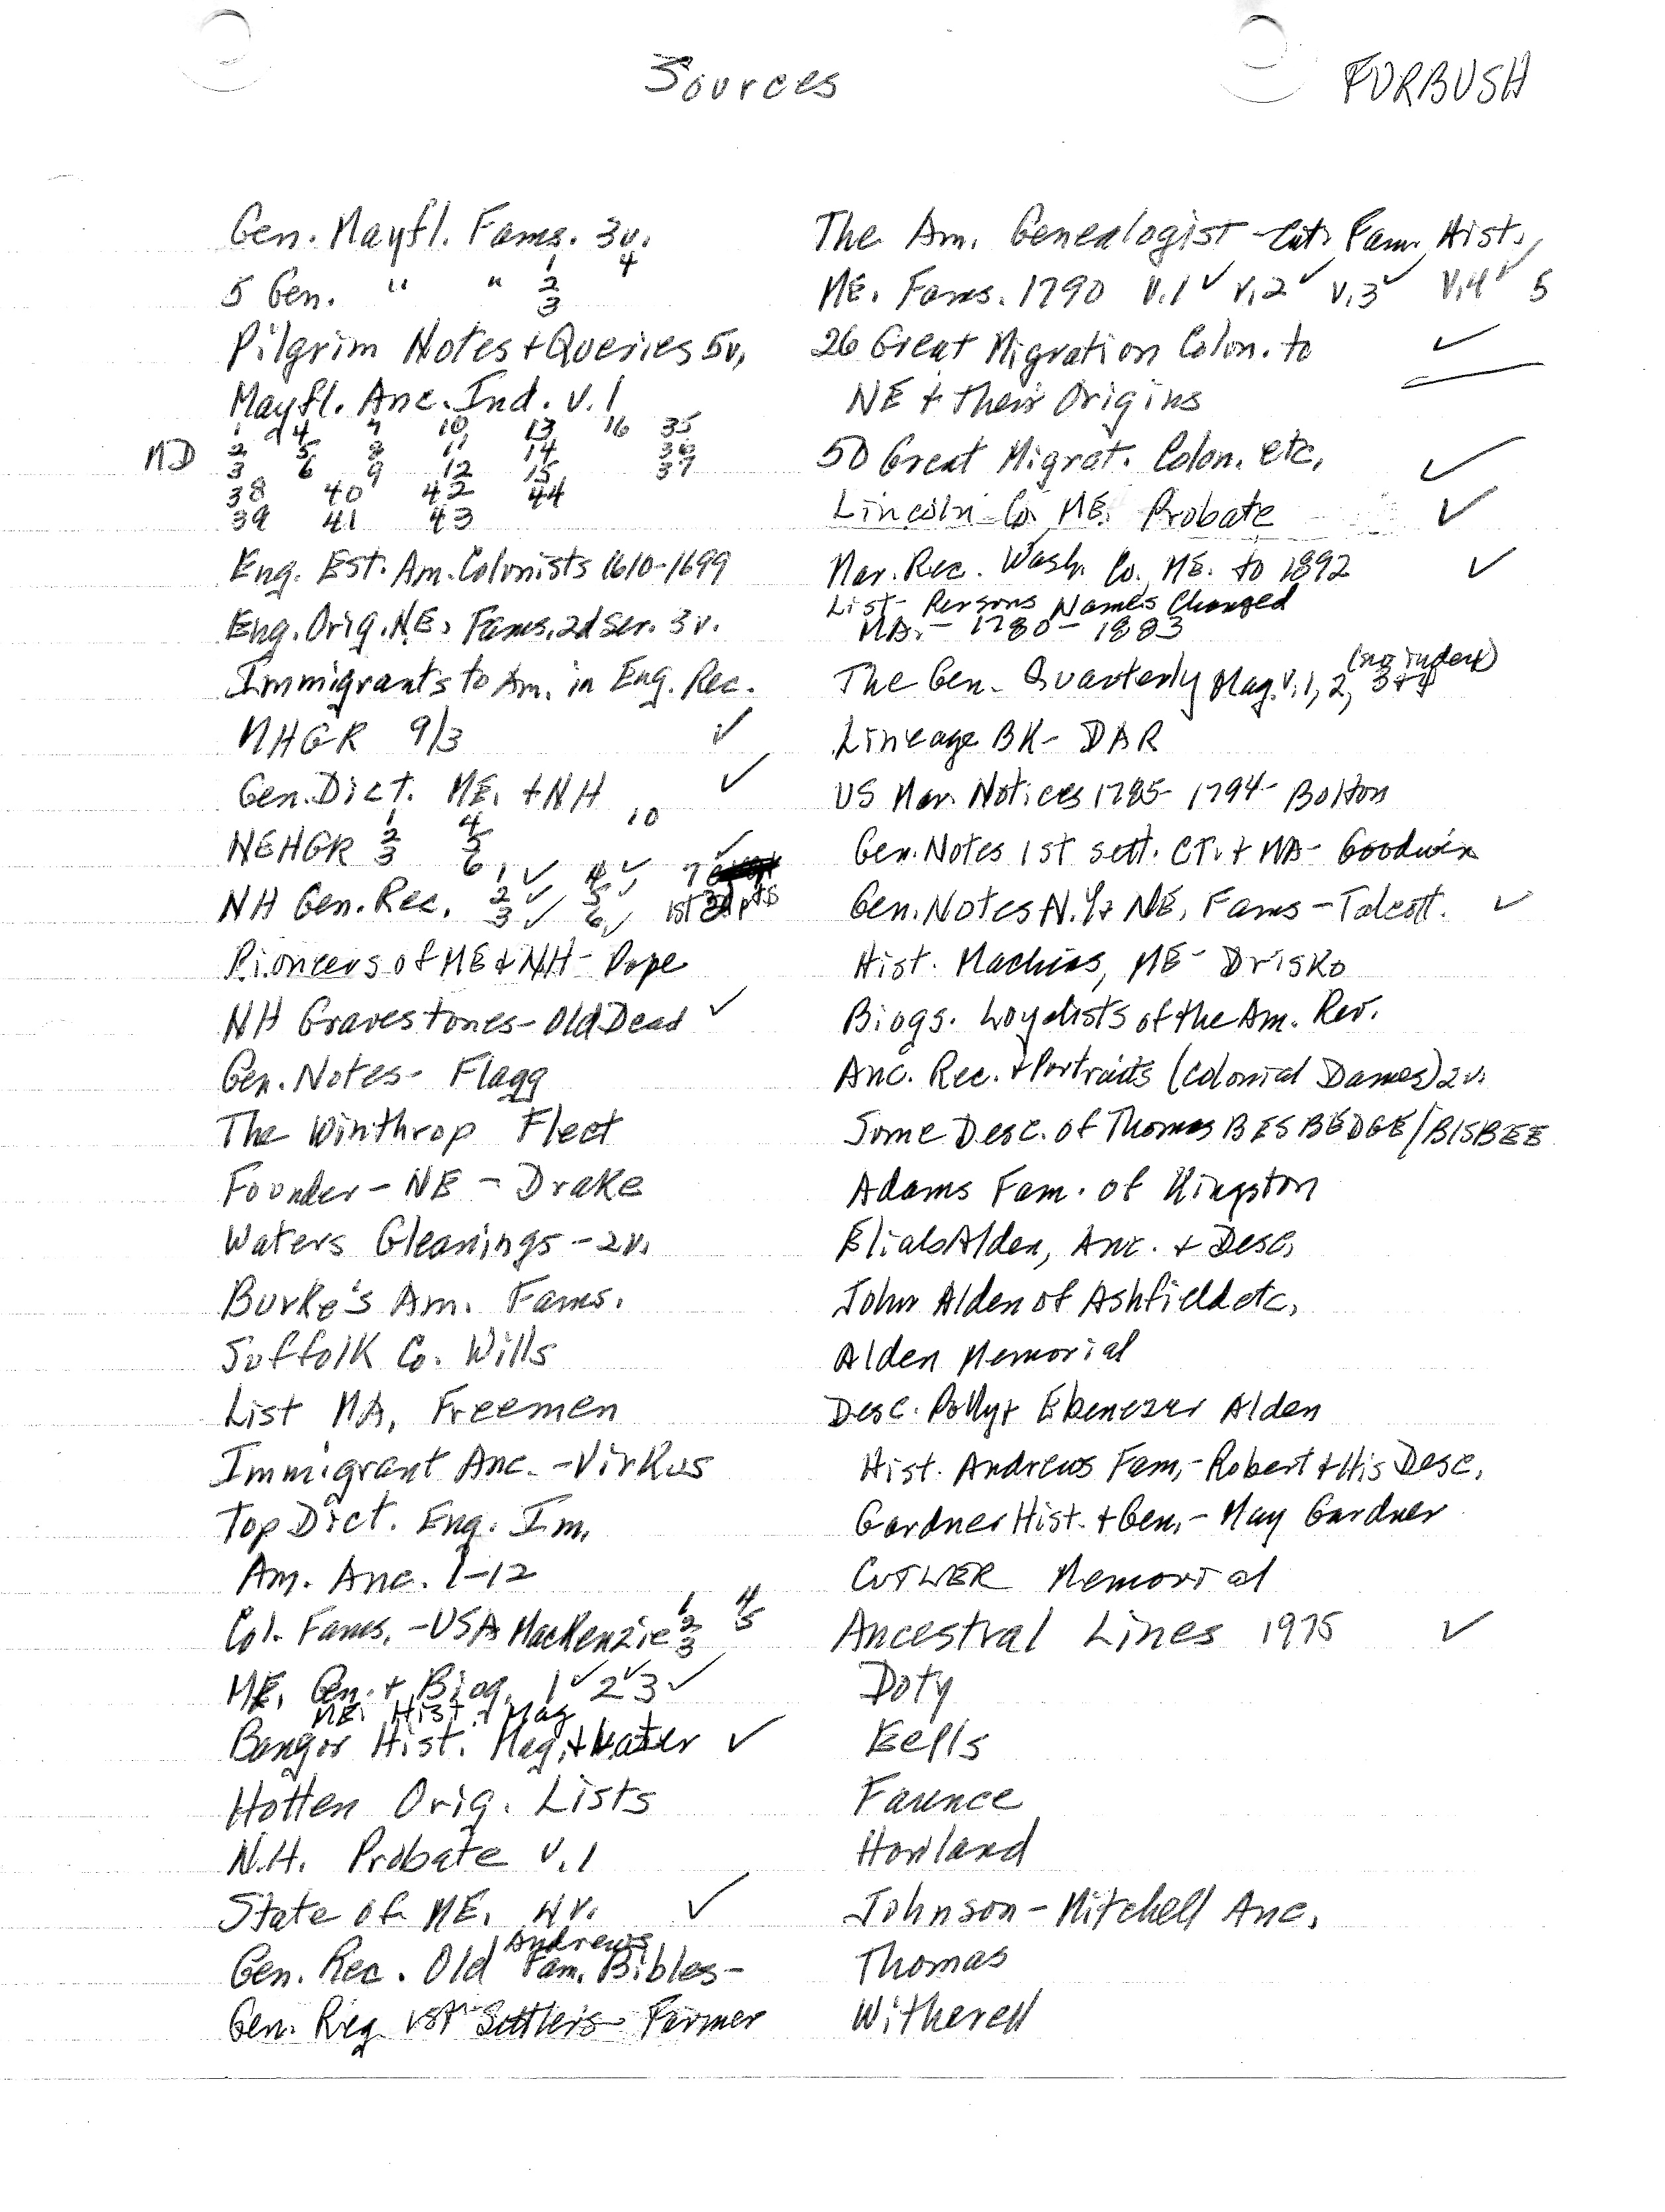 Sources
FORBUSH
Gen. Mayfl. Fams. 3v.
5 Gen. " " 1 2 3 4
Pilgrim Notes + Queries 5v.
Mayfl. Anc. Ind. v. 1
MD
1 4 7 10 13 16 35
2 5 8 11 14 36
3 6 9 12 15 37
38 40 42 44
39 41 43
Eng. Est. Am. Colonists 1610-1699
Eng. Orig. NE. Fams. 2d Ser. 3v.
Immigrants to Am. in Eng. Rec.
NHGR 9/3 ✓
Gen. Dict. ME. + NH ✓
NEHGR 1 2 3 4 5 6 10
NH Gen. Rec. 1 ✓ 2 ✓ 3 ✓ 4 ✓ 5 ✓ 6 ✓ 7 ✓ 1st pts
Pioneers of ME & NH - Pope
NH Gravestones - Old Dead ✓
Gen. Notes - Flagg
The Winthrop Fleet
Founder - NE - Drake
Waters Gleanings - 2v.
Burke's Am. Fams.
Suffolk Co. Wills
List MA. Freemen
Immigrant Anc. - Virkus
Top Dict. Eng. Im.
Am. Anc. 1-12
Col. Fams. - USA MacKenzie 1 2 3 4 5
ME. Gen. + Biog. 1 ✓ 2 ✓ 3 ✓
ME. Hist. + Mag
Bangor Hist. Mag. + later ✓
Hotten Orig. Lists
N.H. Probate v. 1
State of ME. 4v. ✓
Andrews
Gen. Rec. Old Fam. Bibles -
Gen. Reg. 1st Settlers - Farmer
The Am. Genealogist - Fam. Hist.
ME. Fams. 1790 v.1 ✓ v.2 ✓ v.3 ✓ v.4 ✓ 5
26 Great Migration Colon. to ✓
NE + their Origins
50 Great Migrat. Colon. etc. ✓
Lincoln Co. ME. Probate ✓
Mar. Rec. Wash. Co., ME. to 1892 ✓
List - Persons Names Changed
MA. - 1780 - 1883
(no index)
The Gen. Quarterly Mag. v. 1, 2, 3 + 4
Lineage BK - DAR
US Mar. Notices 1785 - 1794 - Bolton
Gen. Notes 1st sett. CT. + MA - Goodwin
Gen. Notes N.Y + NE. Fams - Talcott. ✓
Hist. Machias, ME - Drisko
Biogs. Loyalists of the Am. Rev.
Anc. Rec. + Portraits (Colonial Dames) 2v.
Some Desc. of Thomas BESBEDGE/BISBEE
Adams Fam. of Kingston
Eliab Alden, Anc. + Desc.
John Alden of Ashfield etc.
Alden Memorial
Desc. Polly + Ebenezer Alden
Hist. Andrews Fam. - Robert + His Desc.
Gardner Hist. + Gen. - May Gardner
CUTLER Memorial
Ancestral Lines 1975 ✓
Doty
Eells
Faunce
Howland
Johnson - Mitchell Anc.
Thomas
Witherell